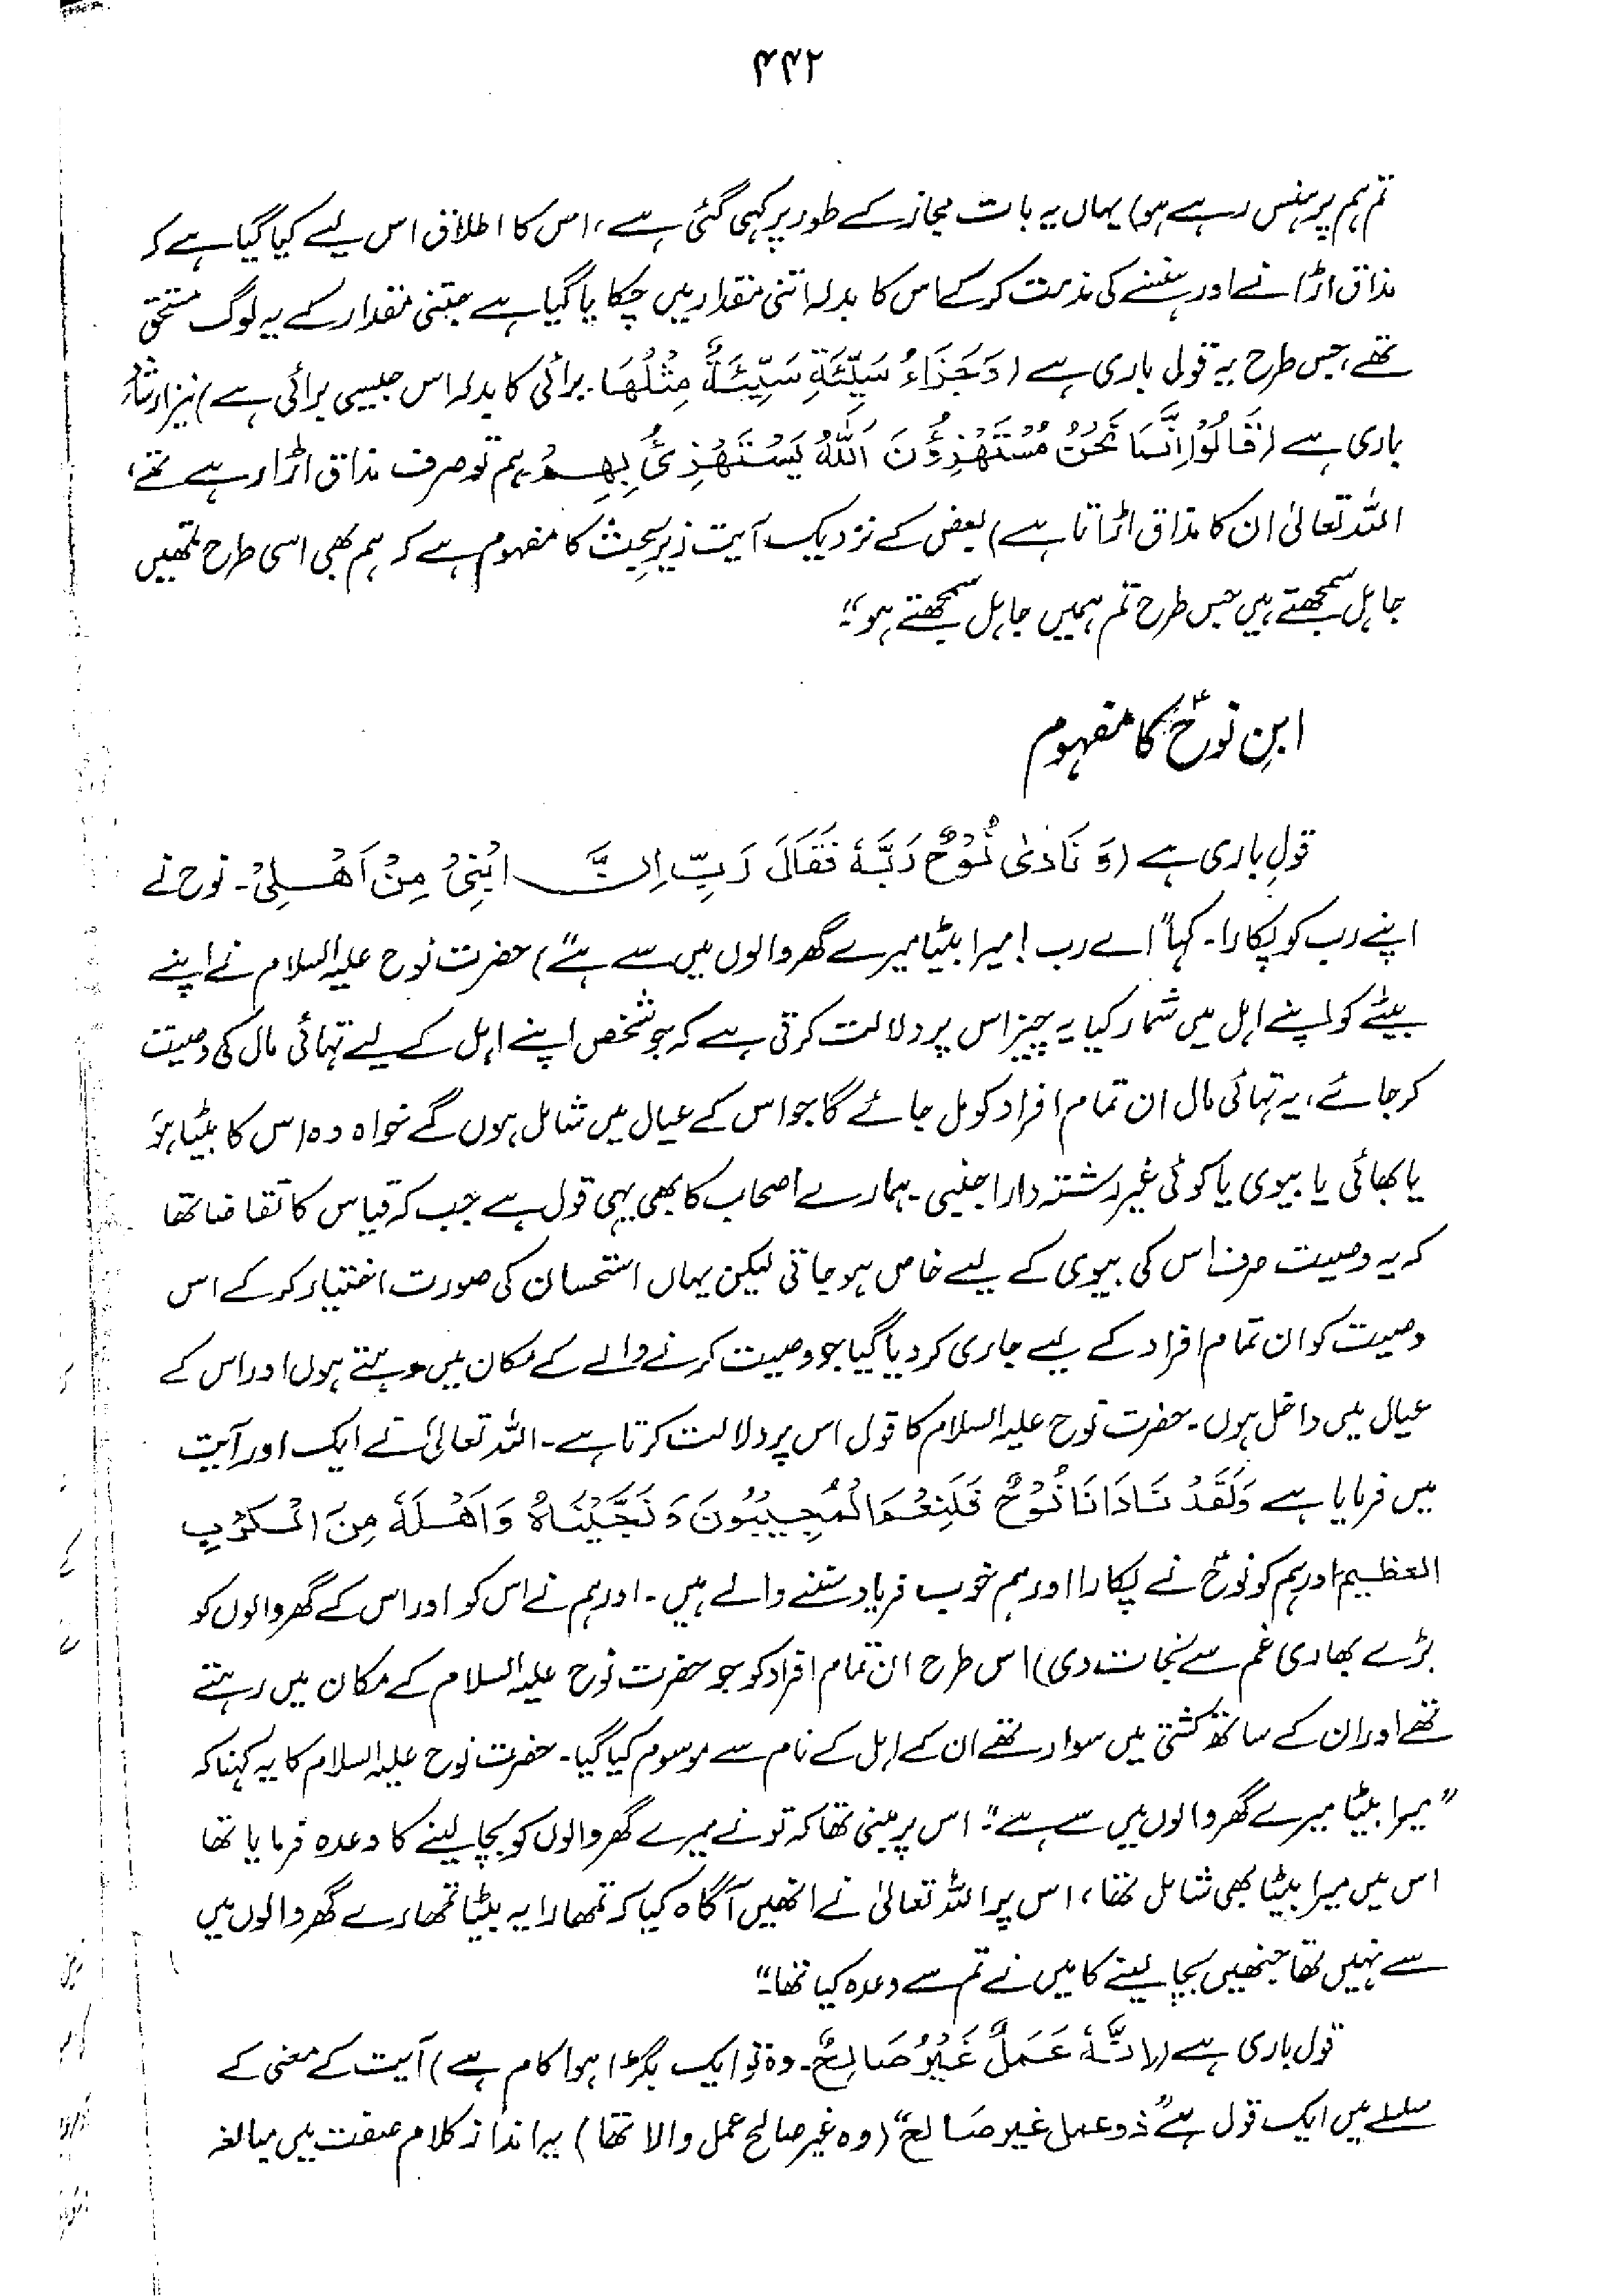 ۴۴۲
تم ہم پر ہنس رہے ہو) یہاں یہ بات مجاز کے طور پر کہی گئی ہے، اس کا اطلاق اس لیے کیا گیا ہے کہ
مذاق اڑانے اور ہنسنے کی مذمت کر کے اس کا بدلہ اتنی مقدار میں چکایا گیا ہے جتنی مقدار کے یہ لوگ مستحق
تھے، جس طرح یہ قول باری ہے (وَجَزَاءُ سَيِّئَةٍ سَيِّئَةٌ مِثْلُهَا۔ برائی کا بدلہ اس جیسی برائی ہے) نیز ارشاد
باری ہے (قَالُوْا اِنَّمَا نَحْنُ مُسْتَهْزِؤُنَ اَللّٰهُ يَسْتَهْزِئُ بِهِمْ ہم تو صرف مذاق اڑا رہے تھے،
اللہ تعالیٰ ان کا مذاق اڑاتا ہے) بعض کے نزدیک آیت زیر بحث کا مفہوم ہے کہ ہم بھی اسی طرح تمھیں
جاہل سمجھتے ہیں جس طرح تم ہمیں جاہل سمجھتے ہو"۔
ابنِ نوحؑ کا مفہوم
قولِ باری ہے (وَ نَادٰى نُوْحٌ رَبَّهٗ فَقَالَ رَبِّ اِنَّ ابْنِيْ مِنْ اَهْلِيْ۔ نوح نے
اپنے رب کو پکارا۔ کہا "اے رب! میرا بیٹا میرے گھر والوں میں سے ہے") حضرت نوح علیہ السلام نے اپنے
بیٹے کو اپنے اہل میں شمار کیا یہ چیز اس پر دلالت کرتی ہے کہ جو شخص اپنے اہل کے لیے تہائی مال کی وصیت
کر جائے، یہ تہائی مال ان تمام افراد کو مل جائے گا جو اس کے عیال میں شامل ہوں گے خواہ وہ اس کا بیٹا ہو
یا بھائی یا بیوی یا کوئی غیر رشتہ دار اجنبی۔ ہمارے اصحاب کا بھی یہی قول ہے جب کہ قیاس کا تقاضا تھا
کہ یہ وصیت صرف اس کی بیوی کے لیے خاص ہو جاتی لیکن یہاں استحسان کی صورت اختیار کر کے اس
وصیت کو ان تمام افراد کے لیے جاری کر دیا گیا جو وصیت کرنے والے کے مکان میں رہتے ہوں اور اس کے
عیال میں داخل ہوں۔ حضرت نوح علیہ السلام کا قول اس پر دلالت کرتا ہے۔ اللہ تعالیٰ نے ایک اور آیت
میں فرمایا ہے وَلَقَدْ نَادَانَا نُوْحٌ فَلَنِعْمَ الْمُجِيْبُوْنَ وَنَجَّيْنَاهُ وَاَهْلَهٗ مِنَ الْكَرْبِ
العظيم اور ہم کو نوحؑ نے پکارا اور ہم خوب فریاد سننے والے ہیں۔ اور ہم نے اس کو اور اس کے گھر والوں کو
بڑے بھاری غم سے نجات دی) اس طرح ان تمام افراد کو جو حضرت نوح علیہ السلام کے مکان میں رہتے
تھے اور ان کے ساتھ کشتی میں سوار تھے ان کے اہل کے نام سے موسوم کیا گیا۔ حضرت نوح علیہ السلام کا یہ کہنا کہ
"میرا بیٹا میرے گھر والوں میں سے ہے"۔ اس پر مبنی تھا کہ تو نے میرے گھر والوں کو بچا لینے کا وعدہ فرمایا تھا
اس میں میرا بیٹا بھی شامل تھا، اس پر اللہ تعالیٰ نے انھیں آگاہ کیا کہ تمھارا یہ بیٹا تمھارے گھر والوں میں
سے نہیں تھا جنھیں بچا لینے کا میں نے تم سے وعدہ کیا تھا"۔
قول باری ہے (اِنَّهٗ عَمَلٌ غَيْرُ صَالِحٍ۔ وہ تو ایک بگڑا ہوا کام ہے) آیت کے معنی کے
سلسلے میں ایک قول ہے "ذو عمل غير صالح" (وہ غیر صالح عمل والا تھا) یہ انداز کلام صفت میں مبالغہ